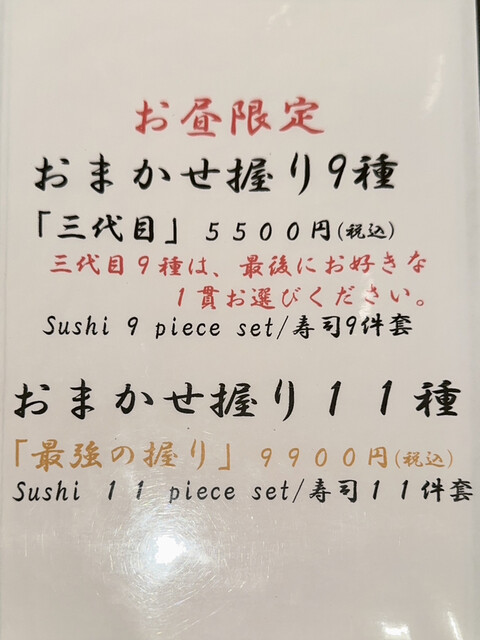 お昼限定
おまかせ握り9種
「三代目」５５００円(税込)
三代目９種は、最後にお好きな
１貫お選びください。
Sushi 9 piece set/寿司9件套
おまかせ握り１１種
「最強の握り」９９００円(税込)
Sushi １１ piece set/寿司１１件套